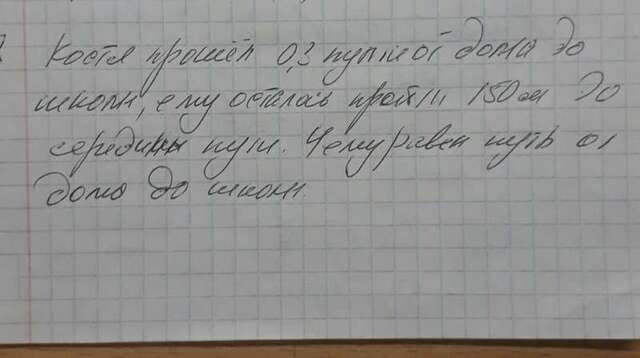 Костя прошёл 0,3 пути от дома до
школы, ему осталось пройти 150 м до
середины пути. Чему равен путь от
дома до школы.